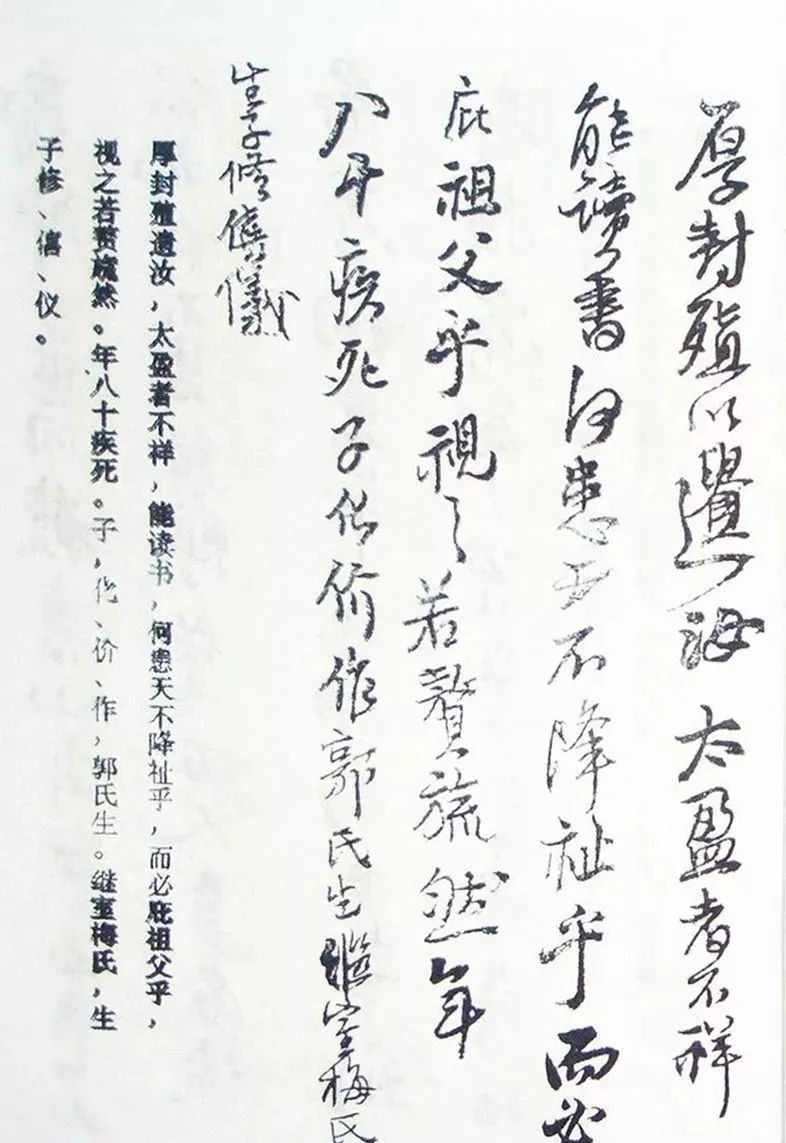 厚封殖以遗汝太盈者不祥
能读书何患天不降祉乎而必
庇祖父乎視之若贅疣然年
八十疾死子化价作郭氏生継室梅氏
生子修僖儀
厚封殖遗汝，太盈者不祥，能读书，何患天不降祉乎，而必庇祖父乎，
视之若赘疣然。年八十疾死。子，化、价、作，郭氏生。继室梅氏，生
子修、僖、仪。